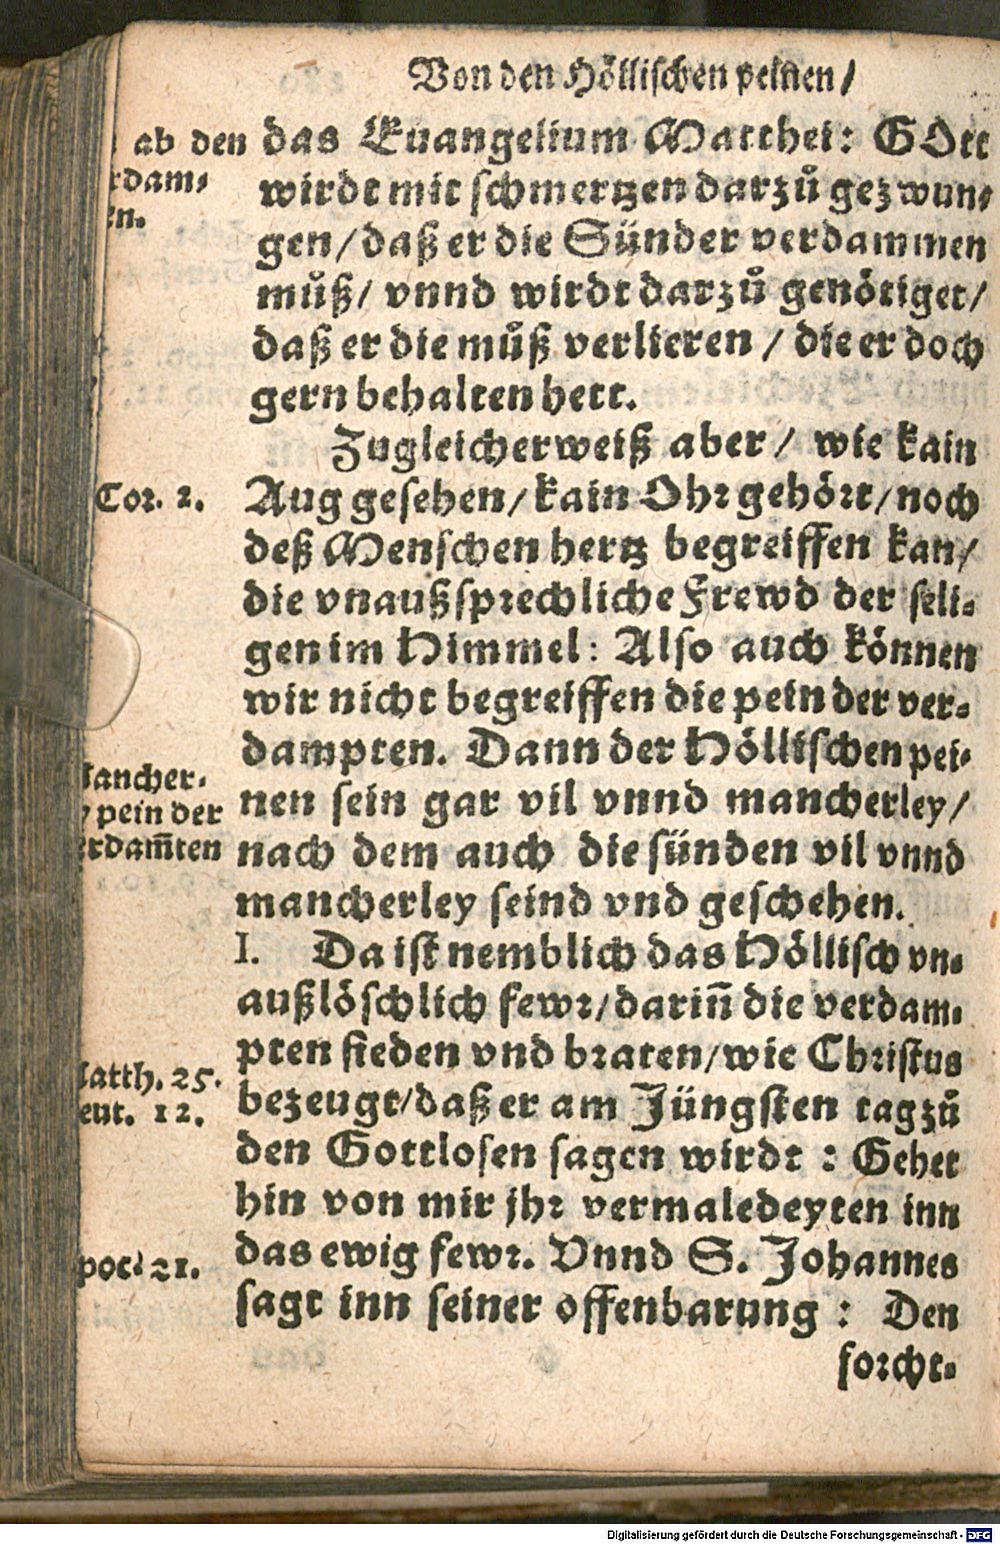 Von den Höllischen peinen/
ab den
rdam⸗
en.
das Euangelium Matthei: GOtt
wirdt mit schmertzen darzů gezwun⸗
gen/ daß er die Sünder verdammen
můß/ vnnd wirdt darzů genötiget/
daß er die můß verlieren / die er doch
gern behalten hett.
Zugleicherweiß aber/ wie kain
Cor. 2.
Aug gesehen/ kain Ohr gehört/ noch
deß Menschen hertz begreiffen kan/
die vnaußsprechliche Frewd der seli⸗
gen im Himmel: Also auch können
wir nicht begreiffen die pein der ver⸗
dampten. Dann der Höllischen pei⸗
ancher⸗
pein der
erdam̃ten
nen sein gar vil vnnd mancherley/
nach dem auch die sünden vil vnnd
mancherley seind vnd geschehen.
I. Da ist nemblich das Höllisch vn⸗
außlöschlich fewr/ dariñ die verdam⸗
pten sieden vnd braten/ wie Christus
atth. 25.
eut. 12.
bezeugt/ daß er am Jüngsten tag zů
den Gottlosen sagen wirdt : Gehet
hin von mir jhr vermaledeyten inn
poc. 21.
das ewig fewr. Vnnd S. Johannes
sagt inn seiner offenbarung : Den
forcht⸗
Digitalisierung gefördert durch die Deutsche Forschungsgemeinschaft - DFG